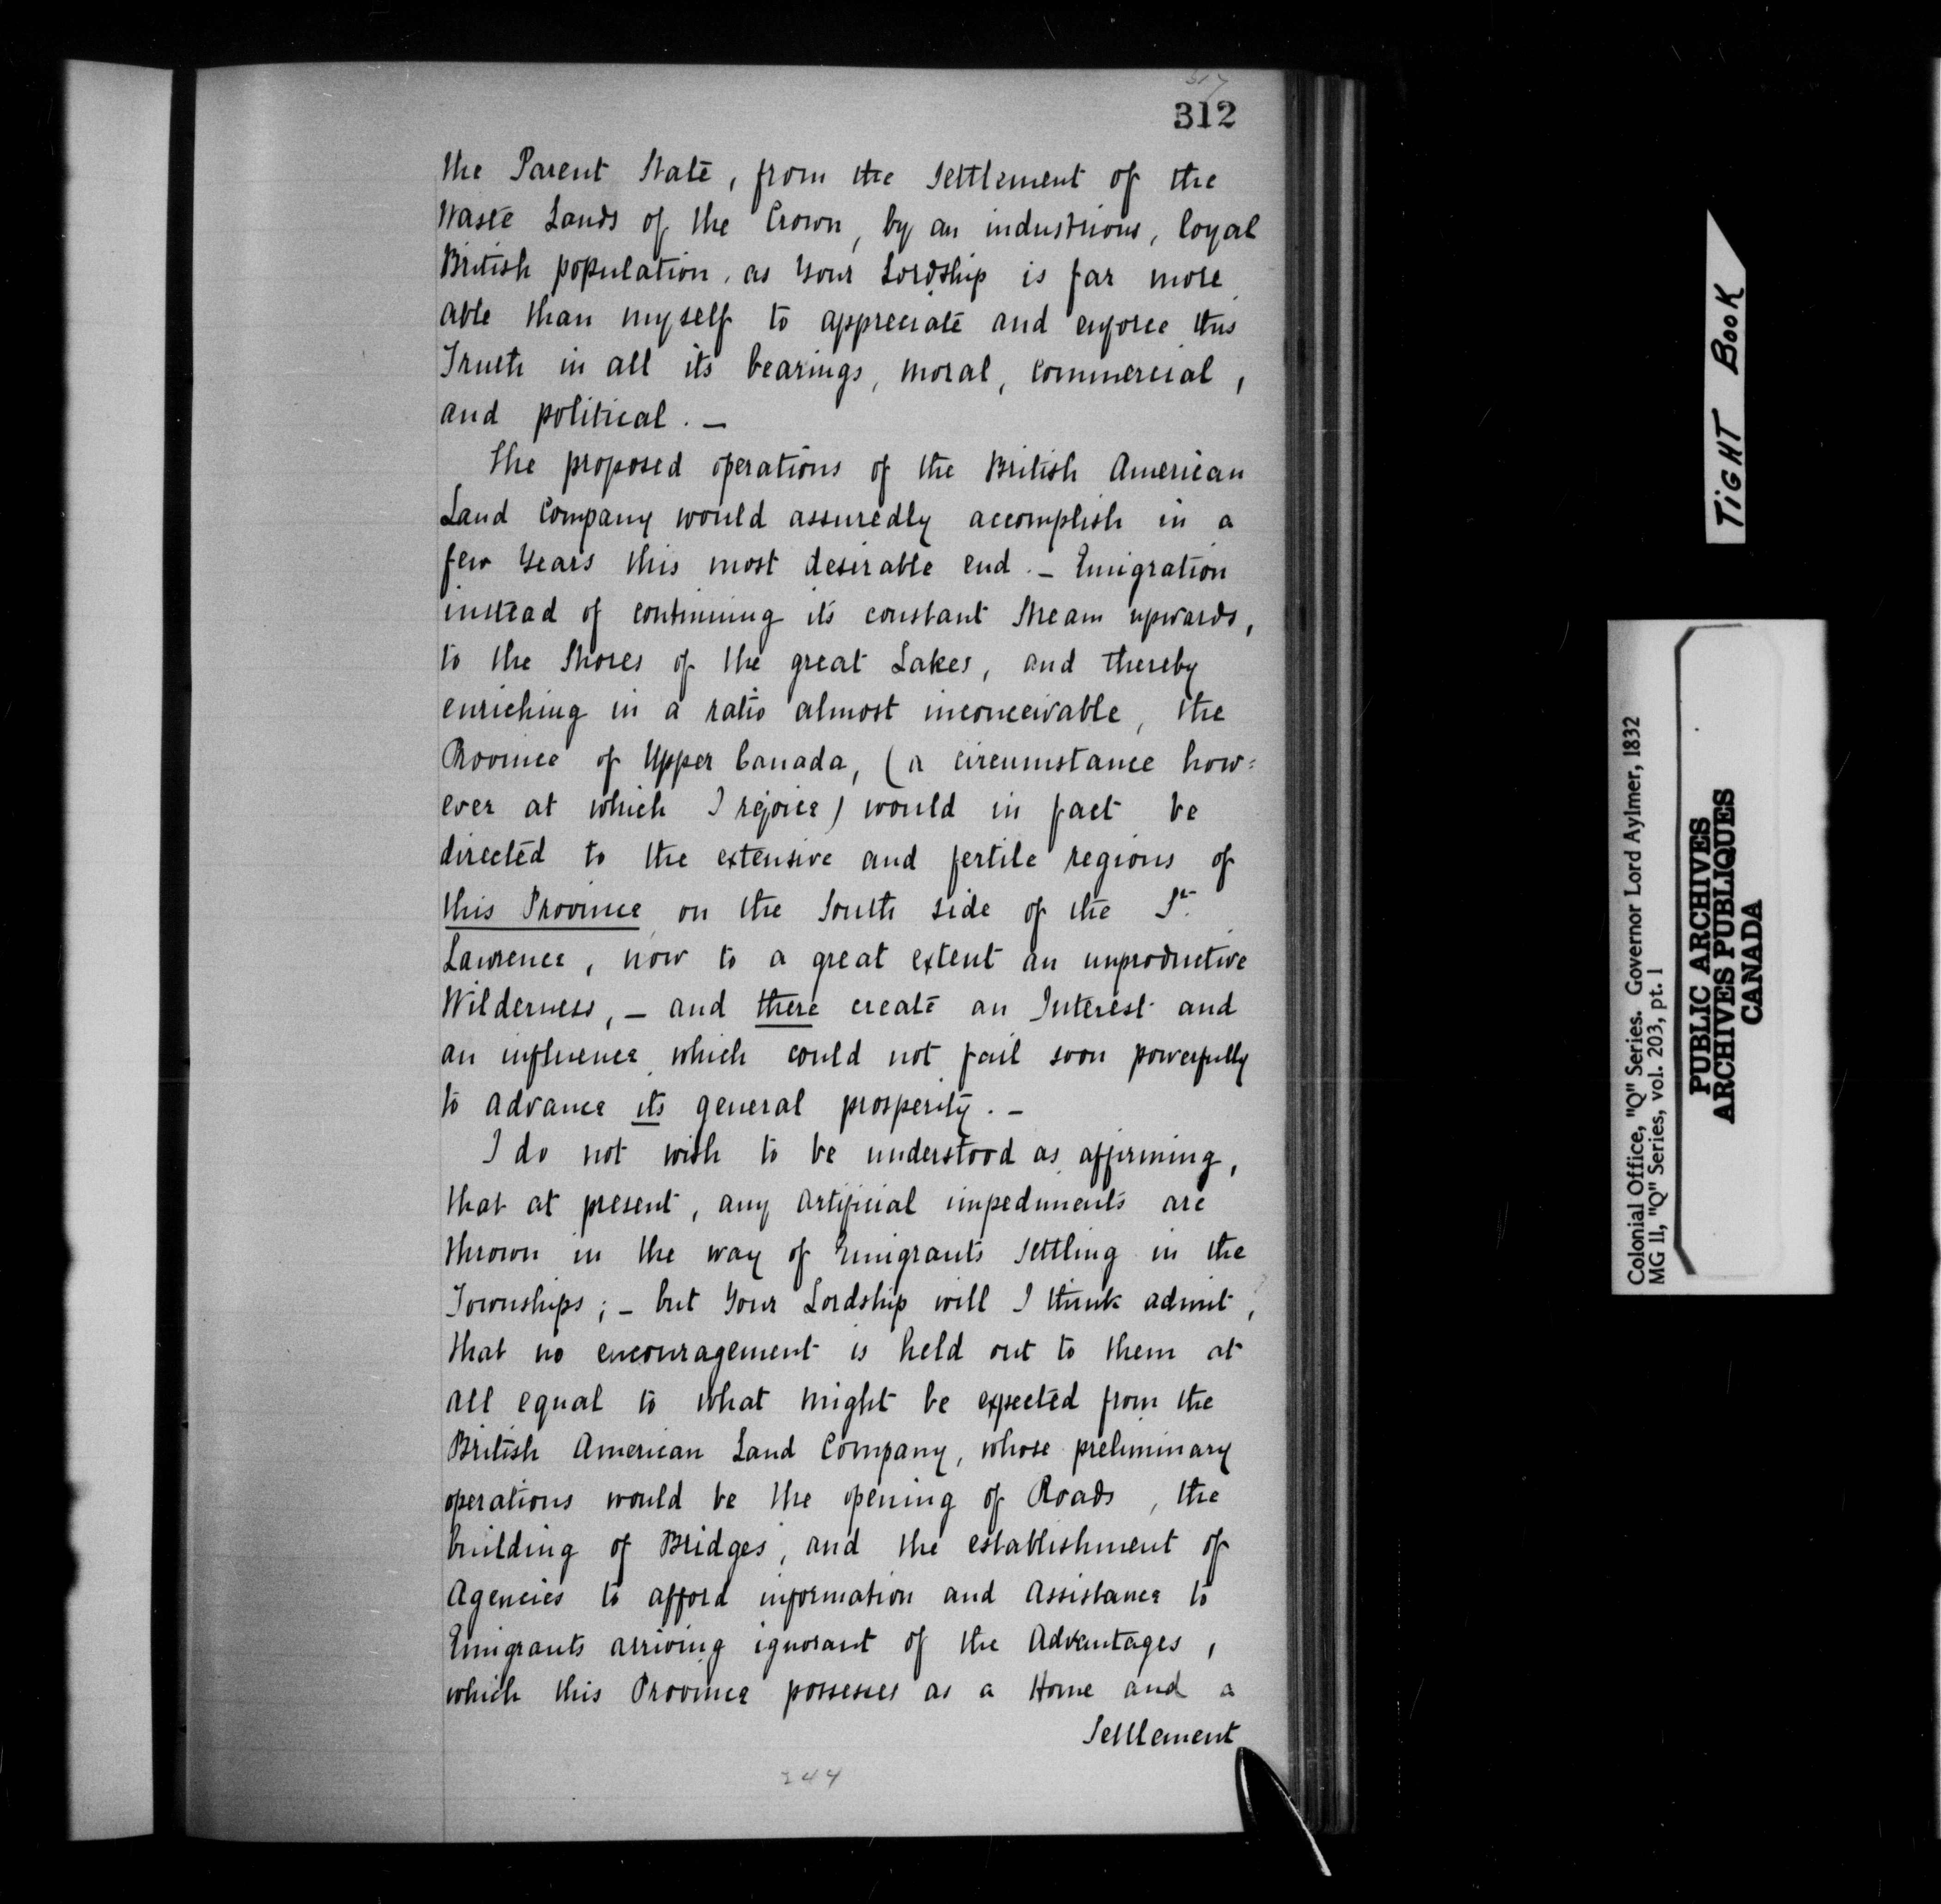 312
the Parent State, from the Settlement of the
Waste Lands of the Crown, by an industrious, loyal
British population, as Your Lordship is far more
able than myself to appreciate and enforce this
Truth in all its bearings, moral, commercial,
and political. —
The proposed operations of the British American
Land Company would assuredly accomplish in a
few Years this most desirable end. — Emigration
instead of continuing its constant Stream upwards,
to the Shores of the great Lakes, and thereby
enriching in a ratio almost inconceivable, the
Province of Upper Canada, (a circumstance how=
ever at which I rejoice) would in fact be
directed to the extensive and fertile regions of
this Province on the South side of the St.
Lawrence, now to a great extent an unproductive
Wilderness, — and there create an Interest and
an influence which could not fail soon powerfully
to advance its general prosperity. —
I do not wish to be understood as affirming,
that at present, any artificial impediments are
thrown in the way of Emigrants Settling in the
Townships; — but Your Lordship will I think admit,
that no encouragement is held out to them at
all equal to what might be expected from the
British American Land Company, whose preliminary
operations would be the opening of Roads, the
building of Bridges, and the establishment of
Agencies to afford information and assistance to
Emigrants arriving ignorant of the Advantages,
which this Province possesses as a Home and a
Settlement
244
TIGHT BOOK
Colonial Office, "Q" Series. Governor Lord Aylmer, 1832
MG 11, "Q" Series, vol. 203, pt. 1
PUBLIC ARCHIVES
ARCHIVES PUBLIQUES
CANADA